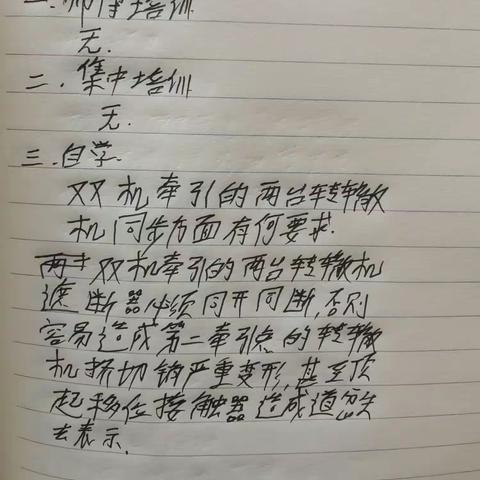 一.师傅培训
无.
二.集中培训
无.
三.自学.
双机牵引的两台转辙
机同步方面有何要求.
两才双机牵引的两台转辙机
遮断器必须同开同断,否则
容易造成第二牵引点的转辙
机挤切销严重变形,甚至顶
起移位接触器造成道岔失
去表示.